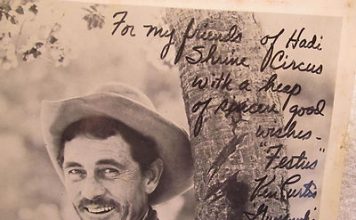 For my friends of Hadi
Shrine Circus
with a heap
of sincere good
wishes –
"Festus"
Ken Curtis